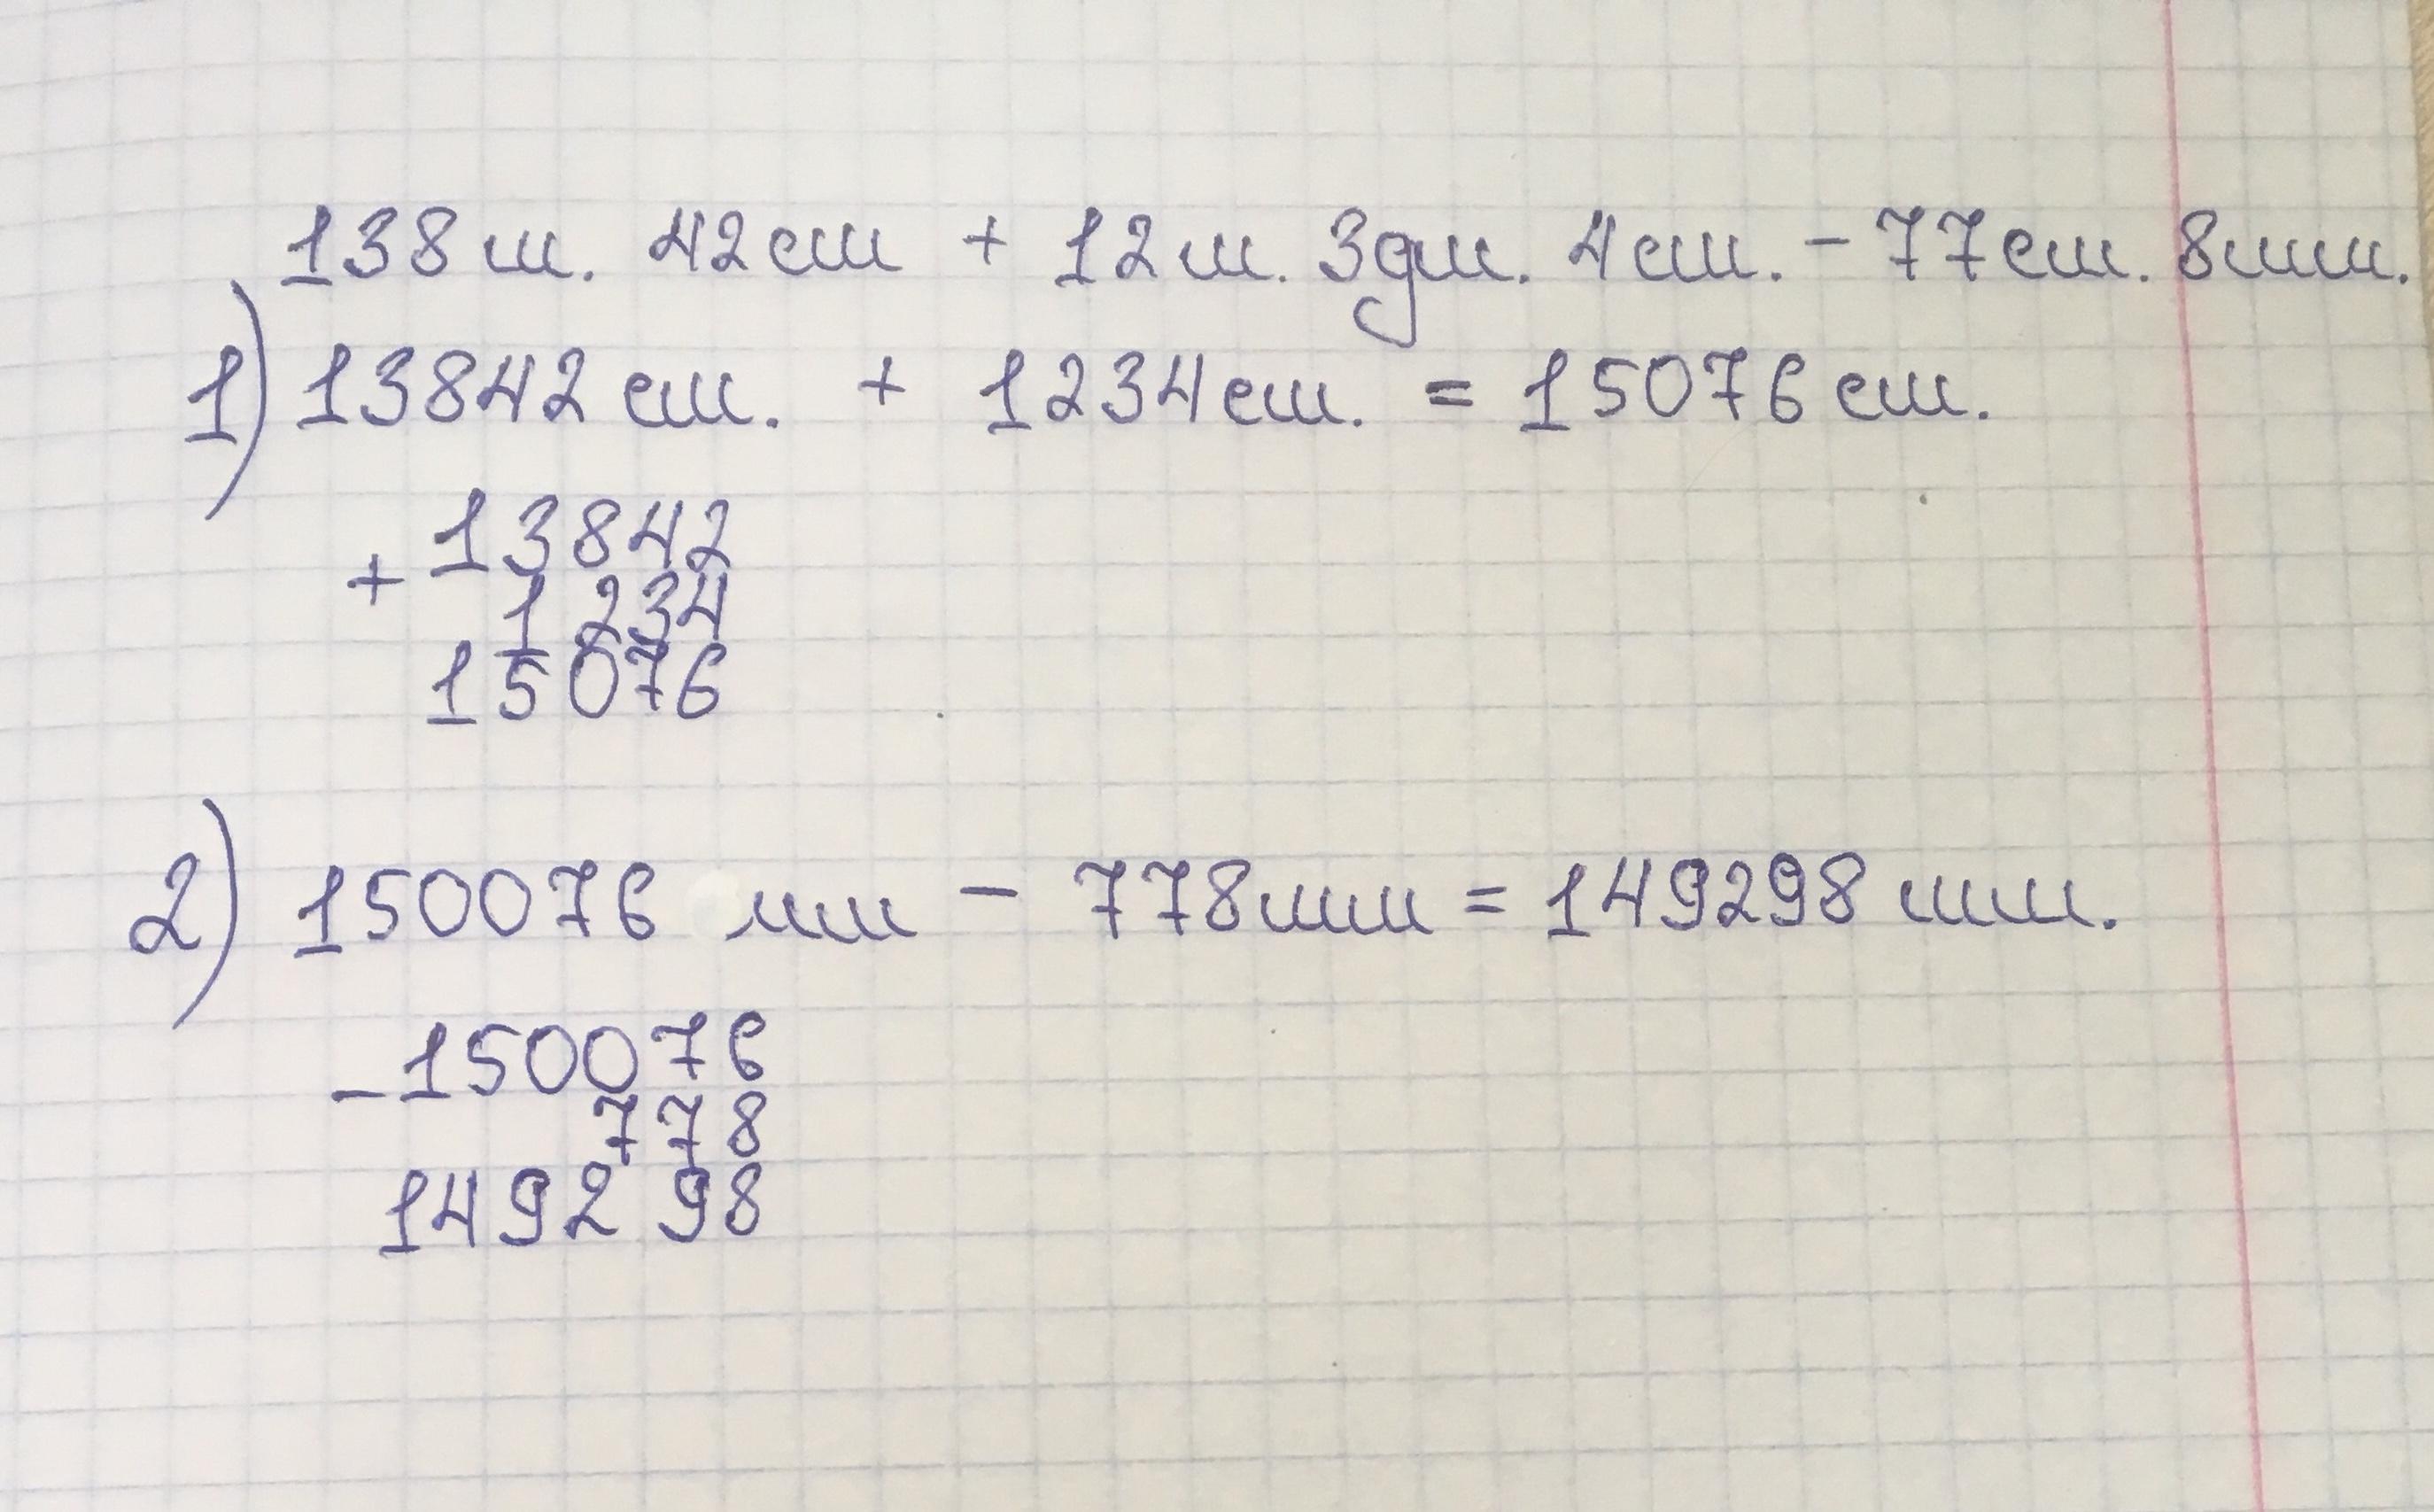 138 м. 42 см + 12 м. 3 дм. 4 см. - 77 см. 8 мм.
1) 13842 см. + 1234 см. = 15076 см.
+ 13842
1234
15076
2) 150076 мм - 778 мм = 149298 мм.
- 150076
778
149298